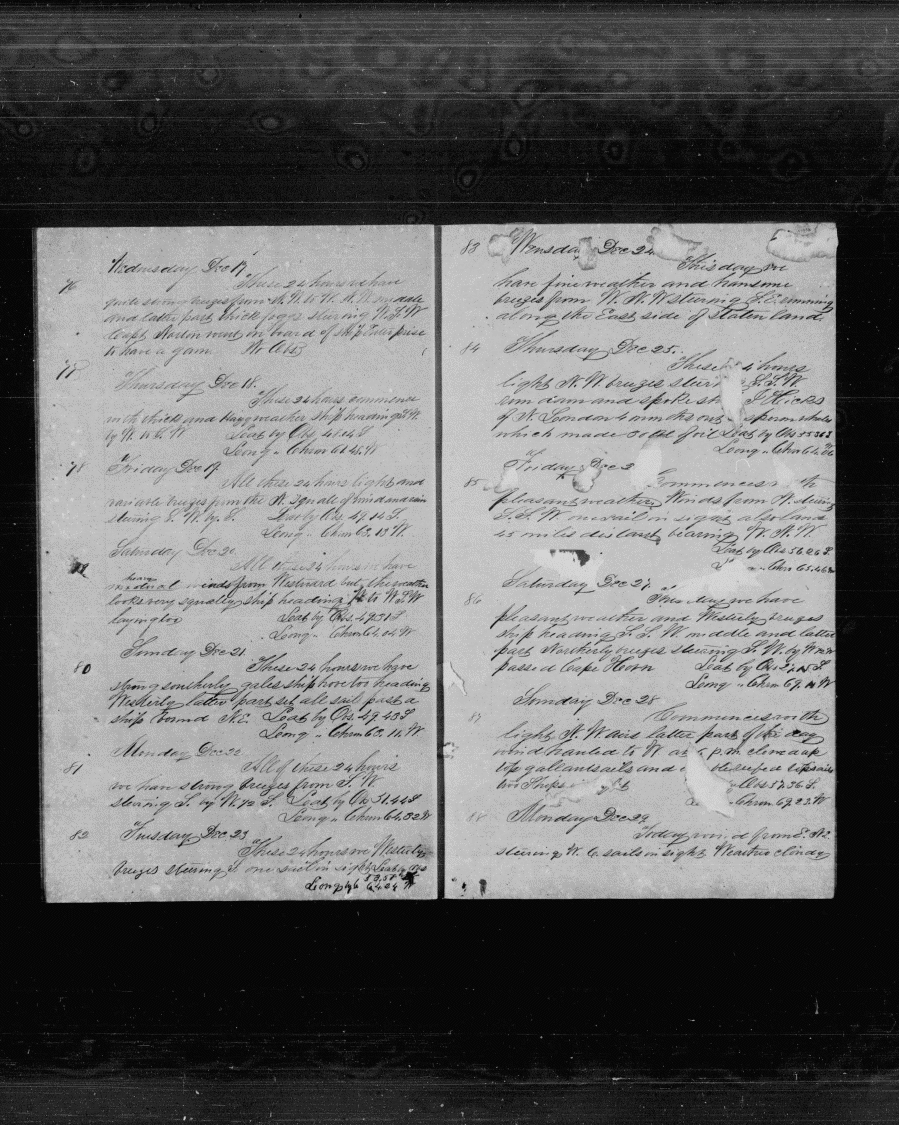 Wednesday Dec 17
76 These 24 hours we have
quite strong breezes from N. W. to W. N. W. middle
and latter part thick fogg steering W. S W
Capt Norton went on board of ship Enterprise
to have a gam No Obs
77
Thursday Dec 18.
These 24 hours commence
with thick and foggy weather ship heading
by W. to S. W Leat by Obs 48.14 S
Long " Chron 61.41. W
78 Friday Dec 19
All these 24 hours light and
variable breezes from the N. squall of wind and rain
steering S. W. by. S. Leat by Obs. 49.14 S
Long " Chron 63.13 W
Saturday Dec 20
All these 24 hours we have
heavy
winds from Westward but the weather
looks very squally ship heading to W. S W
laying too Leat by Obs. 49.31 S
Long " Chron 64.04 W
Sunday Dec 21
80 These 24 hours we have
strong southerly gales ship hove too heading
Westerly latter part set all sail past a
ship bound N. E. Leat by Obs. 49.43 S
Long " Chron 63.11 W
Monday Dec 22
81 All of these 24 hours
we have strong breezes from S. W.
steering S. by W. ½ S. Leat by Obs 51.44 S
Long " Chron 64.02 W
82 Tuesday Dec 23
These 24 hours we Westerly
breezes steering S. one sail in sight Leat by Obs
53.58
Long by 64.24 W
83 Wensday Dec 24
This day we
have fine weather and hansome
breezes from W. N. W steering S. E. running
along the East side of Staten land.
84 Thursday Dec 25.
These 4 hours
light N. W. breezes steer S. S. W.
run down and spoke sh Hicks
of N. London 4 months out sperm whales
which made oil Leat by Obs 55 36 S
Long " Chron 64.06
Friday Dec 2
85 Commences
pleasant weather Winds from N. steering
S. S. W one sail in sight also land
45 miles distant bearing W. N. W.
Leat by Obs 56.26 S.
" Chro 65.46
Saturday Dec 27
86 This day we have
pleasant weather and Westerly breezes
ship heading S. S. W middle and latter
part Northerly breezes steering S. W. by W
passed Cape Horn Leat by Obs 57.15 S
Long " Chron 67.14 W
Sunday Dec 28
87 Commences with
light N. W airs latter part of the day
wind hauled to W at p.m. clewed up
top gallantsails and reefed topsails
two Ships Obs 57.36 S.
" Chron 69.23. W
88 Monday Dec 29
Today wind from S. W.
steering W. 6. sails in sight Weather cloudy